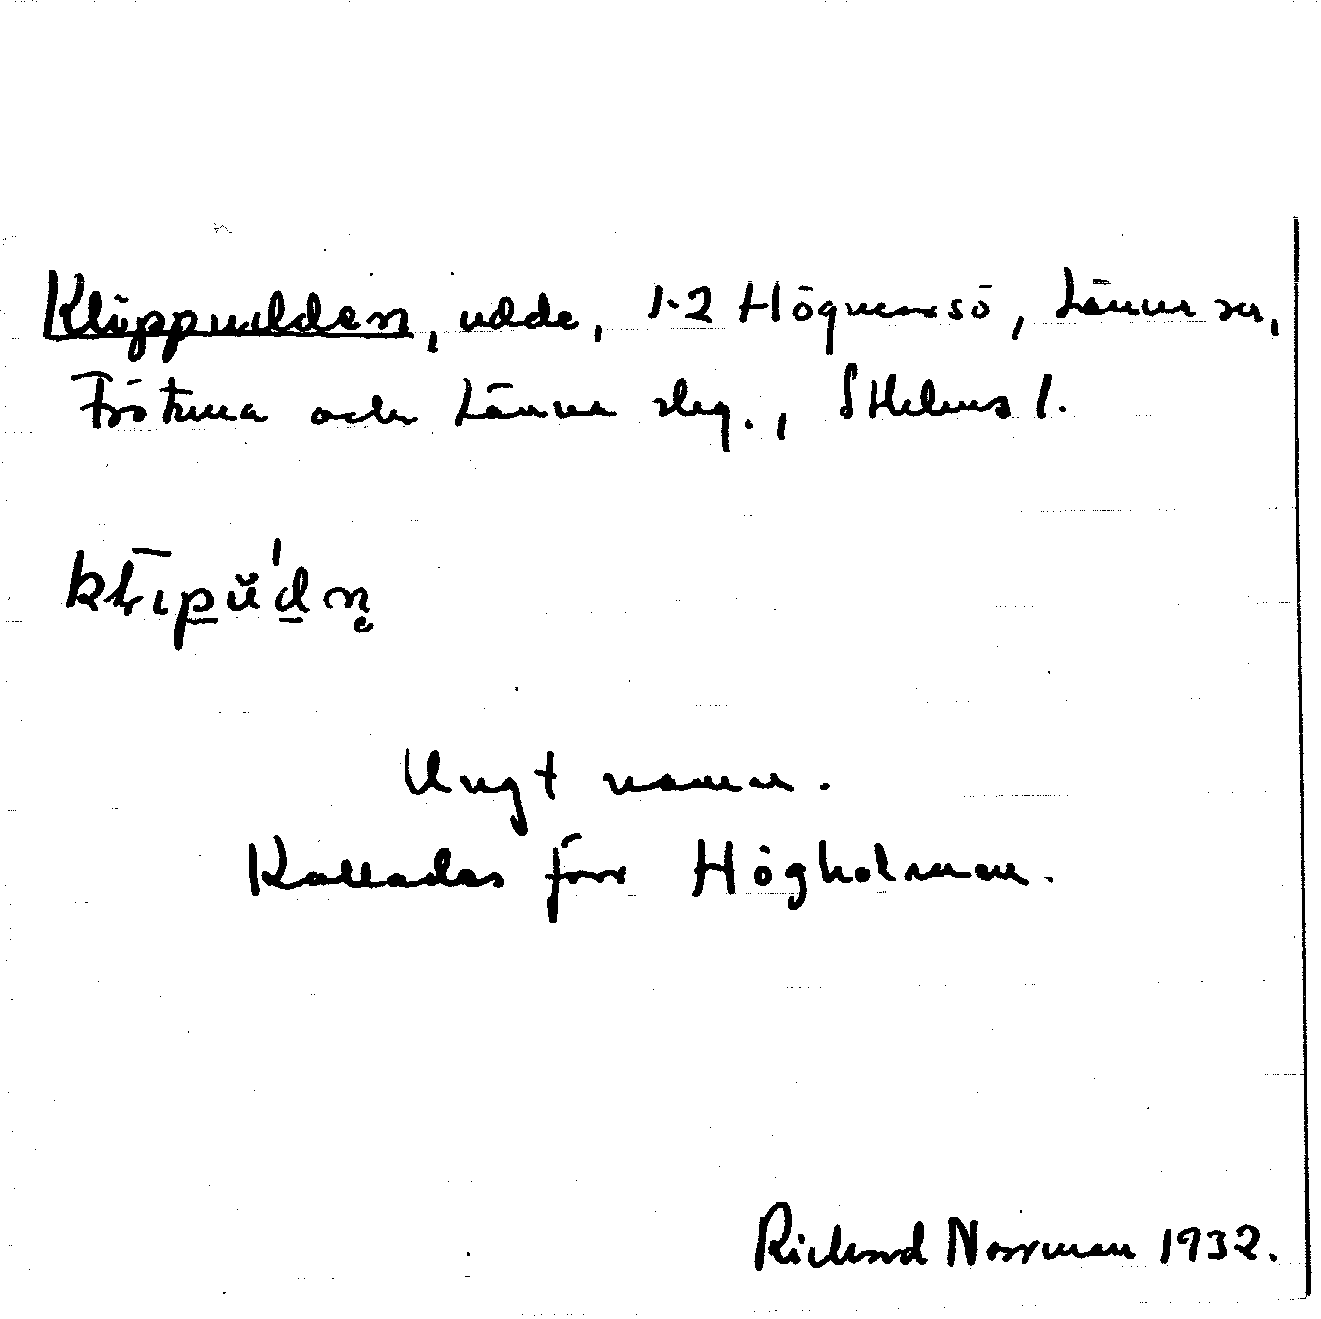 Klippudden, udde, 1-2 Högmarsö, Länna sn,
Frötuna och Länna slg., Sthlms l.
kłīpŭ'dn̥
Ungt namn.
Kallades förr Högholmen.
Rickard Norrman 1932.